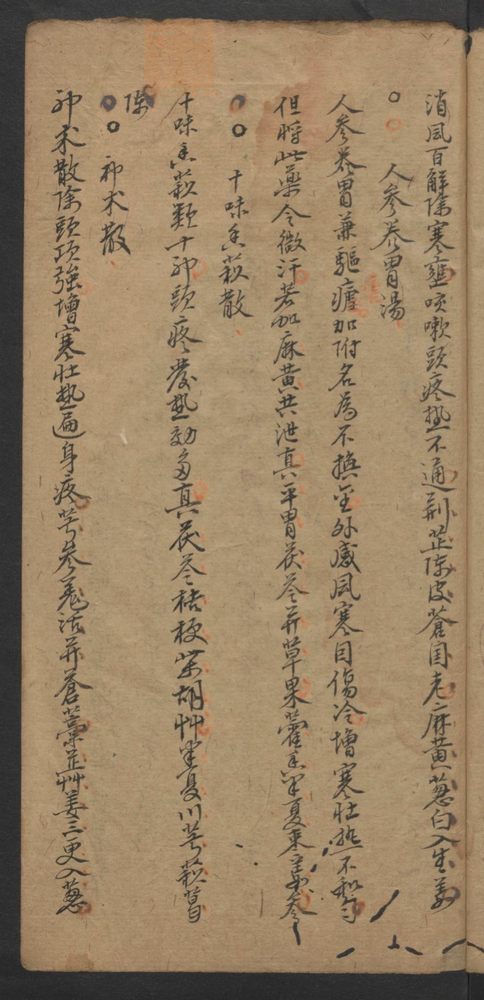 消風百解除寒壅咳嗽頭疼热不通荆芷陈皮蒼国老麻黄葱白入生姜
人參养胃湯
人參养胃兼驅瘧加附名為不換金外感風寒因傷冷增寒壮热不和匀
但將此藥令微汗若加麻黄共泄真平胃茯苓并草果藿香半夏枣姜參
十味香菽散
十味香菽類十神頭疼發热効多真茯苓桔梗柴胡草半夏川芎菽
陈
神术散
神术散除頭項強增寒壮热遍身疼芎參羗活并蒼藁芷草姜三更入葱